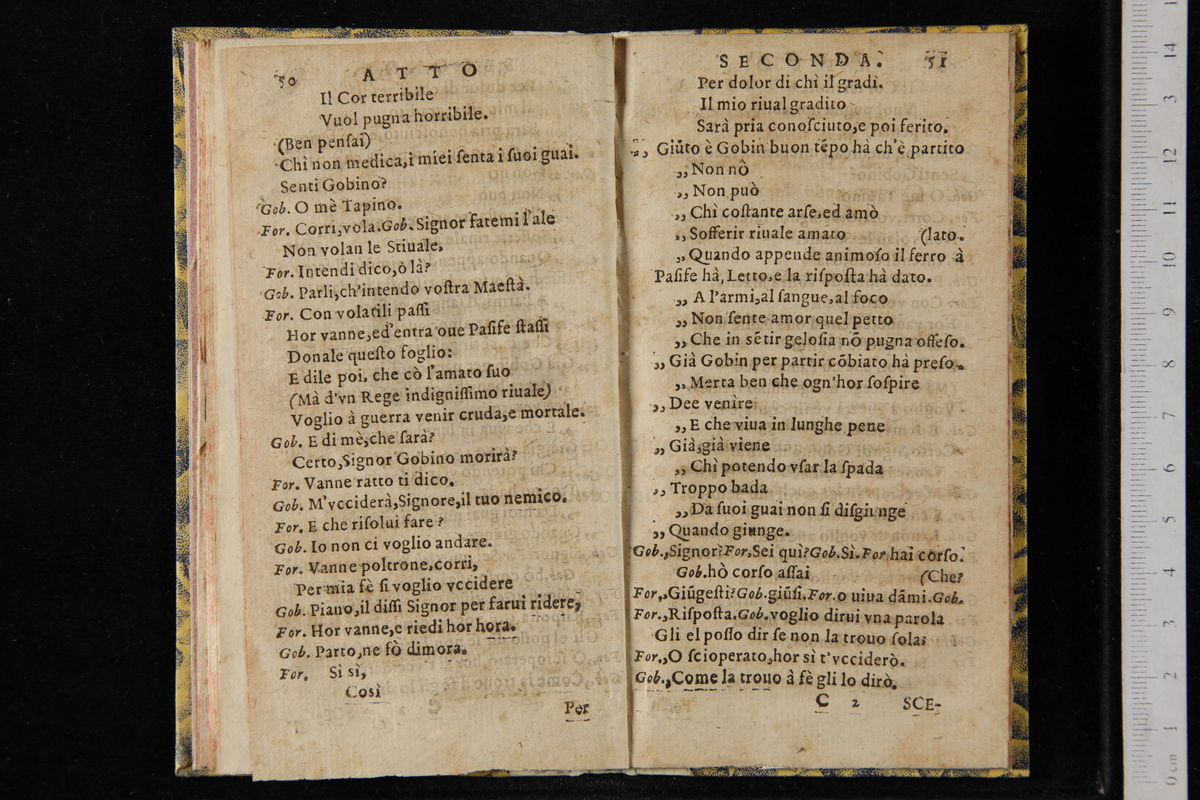 50 ATTO
Il Cor terribile
Vuol pugna horribile.
(Ben penſai)
Chì non medica,i miei ſenta i ſuoi guai.
Senti Gobino?
Gob. O mè Tapino.
For. Corri,vola.Gob.Signor fatemi l'ale
Non volan le Stiuale,
For. Intendi dico,ò là?
Gob. Parli,ch'intendo voſtra Maeſtà.
For. Con volatili paſſi
Hor vanne,ed'entra oue Paſife ſtaſſi
Donale queſto foglio:
E dile poi, che cò l'amato ſuo
(Mà d'vn Rege indigniſſimo riuale)
Voglio à guerra venir cruda,e mortale.
Gob. E di mè,che ſarà?
Certo,Signor Gobino morirà?
For. Vanne ratto ti dico.
Gob. M'vcciderà,Signore,il tuo nemico.
For. E che riſolui fare ?
Gob. Io non ci voglio andare.
For. Vanne poltrone,corri,
Per mia fè ſi voglio vccidere
Gob. Piano,il diſſi Signor per farui ridere,
For. Hor vanne,e riedi hor hora.
Gob. Parto,ne fò dimora.
For. Sì sì,
Così
Per
SECONDA. 51
Per dolor di chì il gradì.
Il mio riual gradito
Sarà pria conoſciuto,e poi ferito.
,, Giũto è Gobin buon tẽpo hà ch'è partito
,, Non nò
,, Non può
,, Chì coſtante arſe,ed amò
,, Sofferir riuale amato (lato.
,, Quando appende animoſo il ferro à
Paſife hà, Letto,e la riſpoſta hà dato.
,, A l'armi,al ſangue,al foco
,, Non ſente amor quel petto
,, Che in sẽtir geloſia nõ pugna offeſo.
,, Già Gobin per partir cõbiato hà preſo.
,, Merta ben che ogn'hor ſoſpire
,, Dee venìre
,, E che viua in lunghe pene
,, Già,già viene
,, Chì potendo vſar la ſpada
,, Troppo bada
,, Da ſuoi guai non ſi diſgiunge
,, Quando giunge.
Gob.,Signor?For,Sei quì?Gob.Sì.For hai corſo.
Gob.hò corſo aſſai (Che?
For,,Giũgeſti?Gob.giũſi.For.o uiua dãmi.Gob.
For.,Riſpoſta.Gob.voglio dirui vna parola
Gli el poſſo dir ſe non la trouo ſola;
For.,O ſcioperato,hor sì t'vcciderò.
Gob.,Come la trouo à fè gli lo dirò.
C 2 SCE-
14
13
12
11
10
9
8
7
6
5
4
3
2
1
0 cm